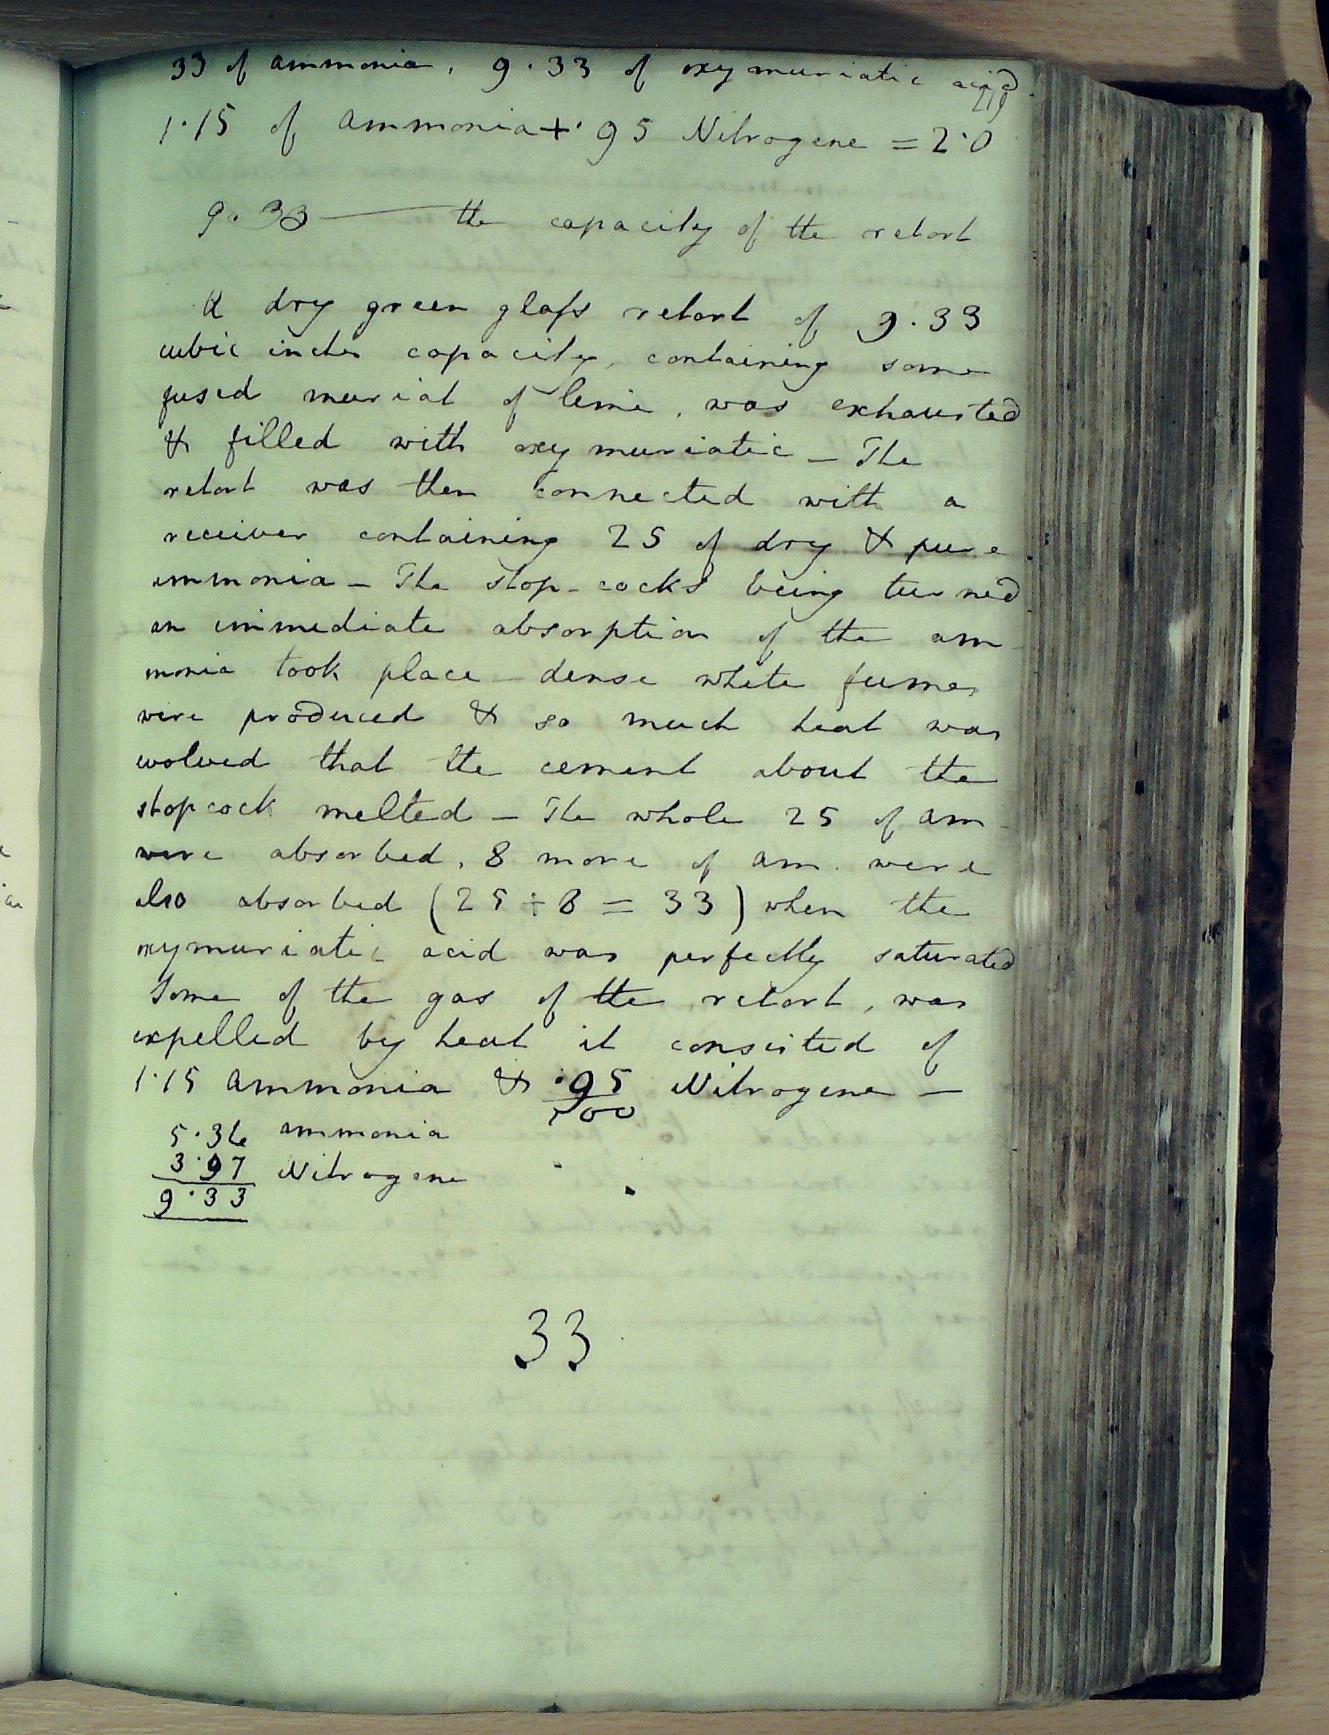 33 of ammonia, 9.33 of oxymuriatic acid
119
1.15 of ammonia + .95 Nitrogene = 2.0
9.33 — the capacity of the retort
A dry green glass retort of 9.33
cubic inches capacity, containing some
fused muriat of lime, was exhausted
& filled with oxymuriatic – The
retort was then connected with a
receiver containing 25 of dry & pure
ammonia – The stop-cocks being turned
an immediate absorption of the am
monia took place – dense white fumes
were produced & so much heat was
evolved that the cement about the
stopcock melted – The whole 25 of am
were absorbed, 8 more of am. were
also absorbed (25 + 8 = 33) when the
oxymuriatic acid was perfectly saturated
Some of the gas of the retort, was
expelled by heat it consisted of
1.15 ammonia & .95 Nitrogene –
200
5.36 ammonia
3.97 Nitrogene
9.33
33